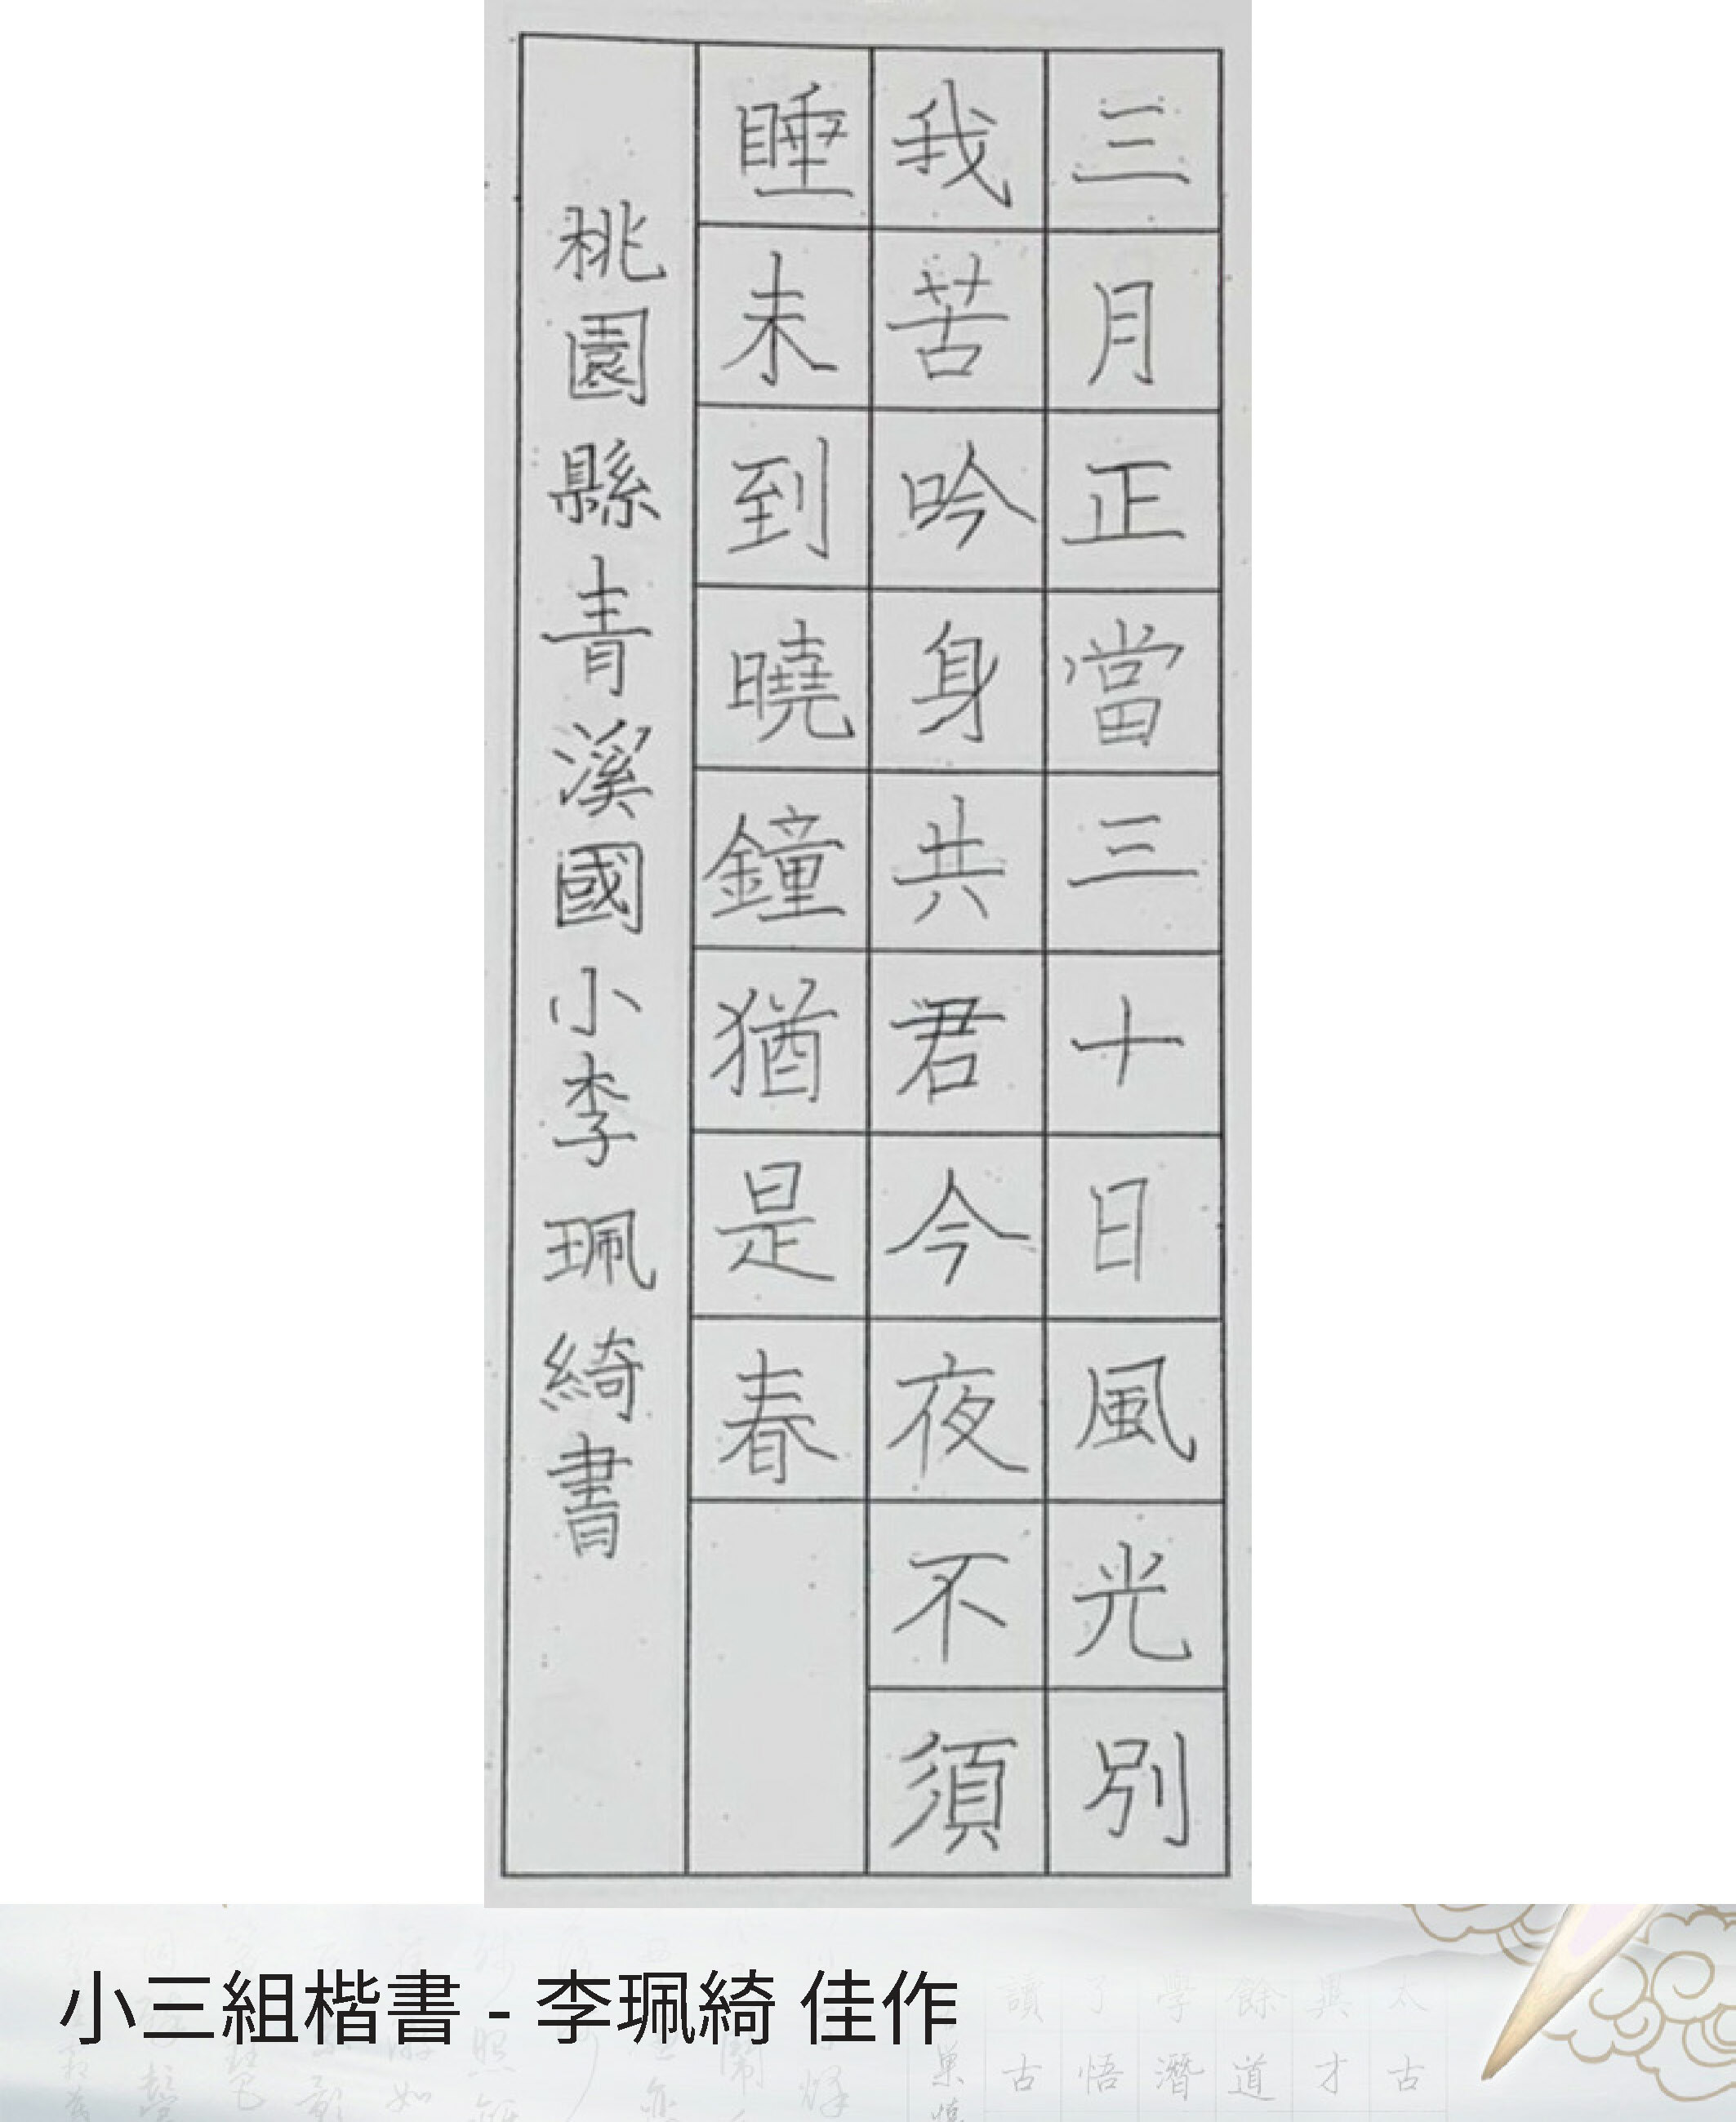 三月正當三十日風光別
我苦吟身共君今夜不須
睡未到曉鐘猶是春
桃園縣青溪國小李珮綺書
小三組楷書 - 李珮綺 佳作
讀了學餘與太
古悟潛道才古